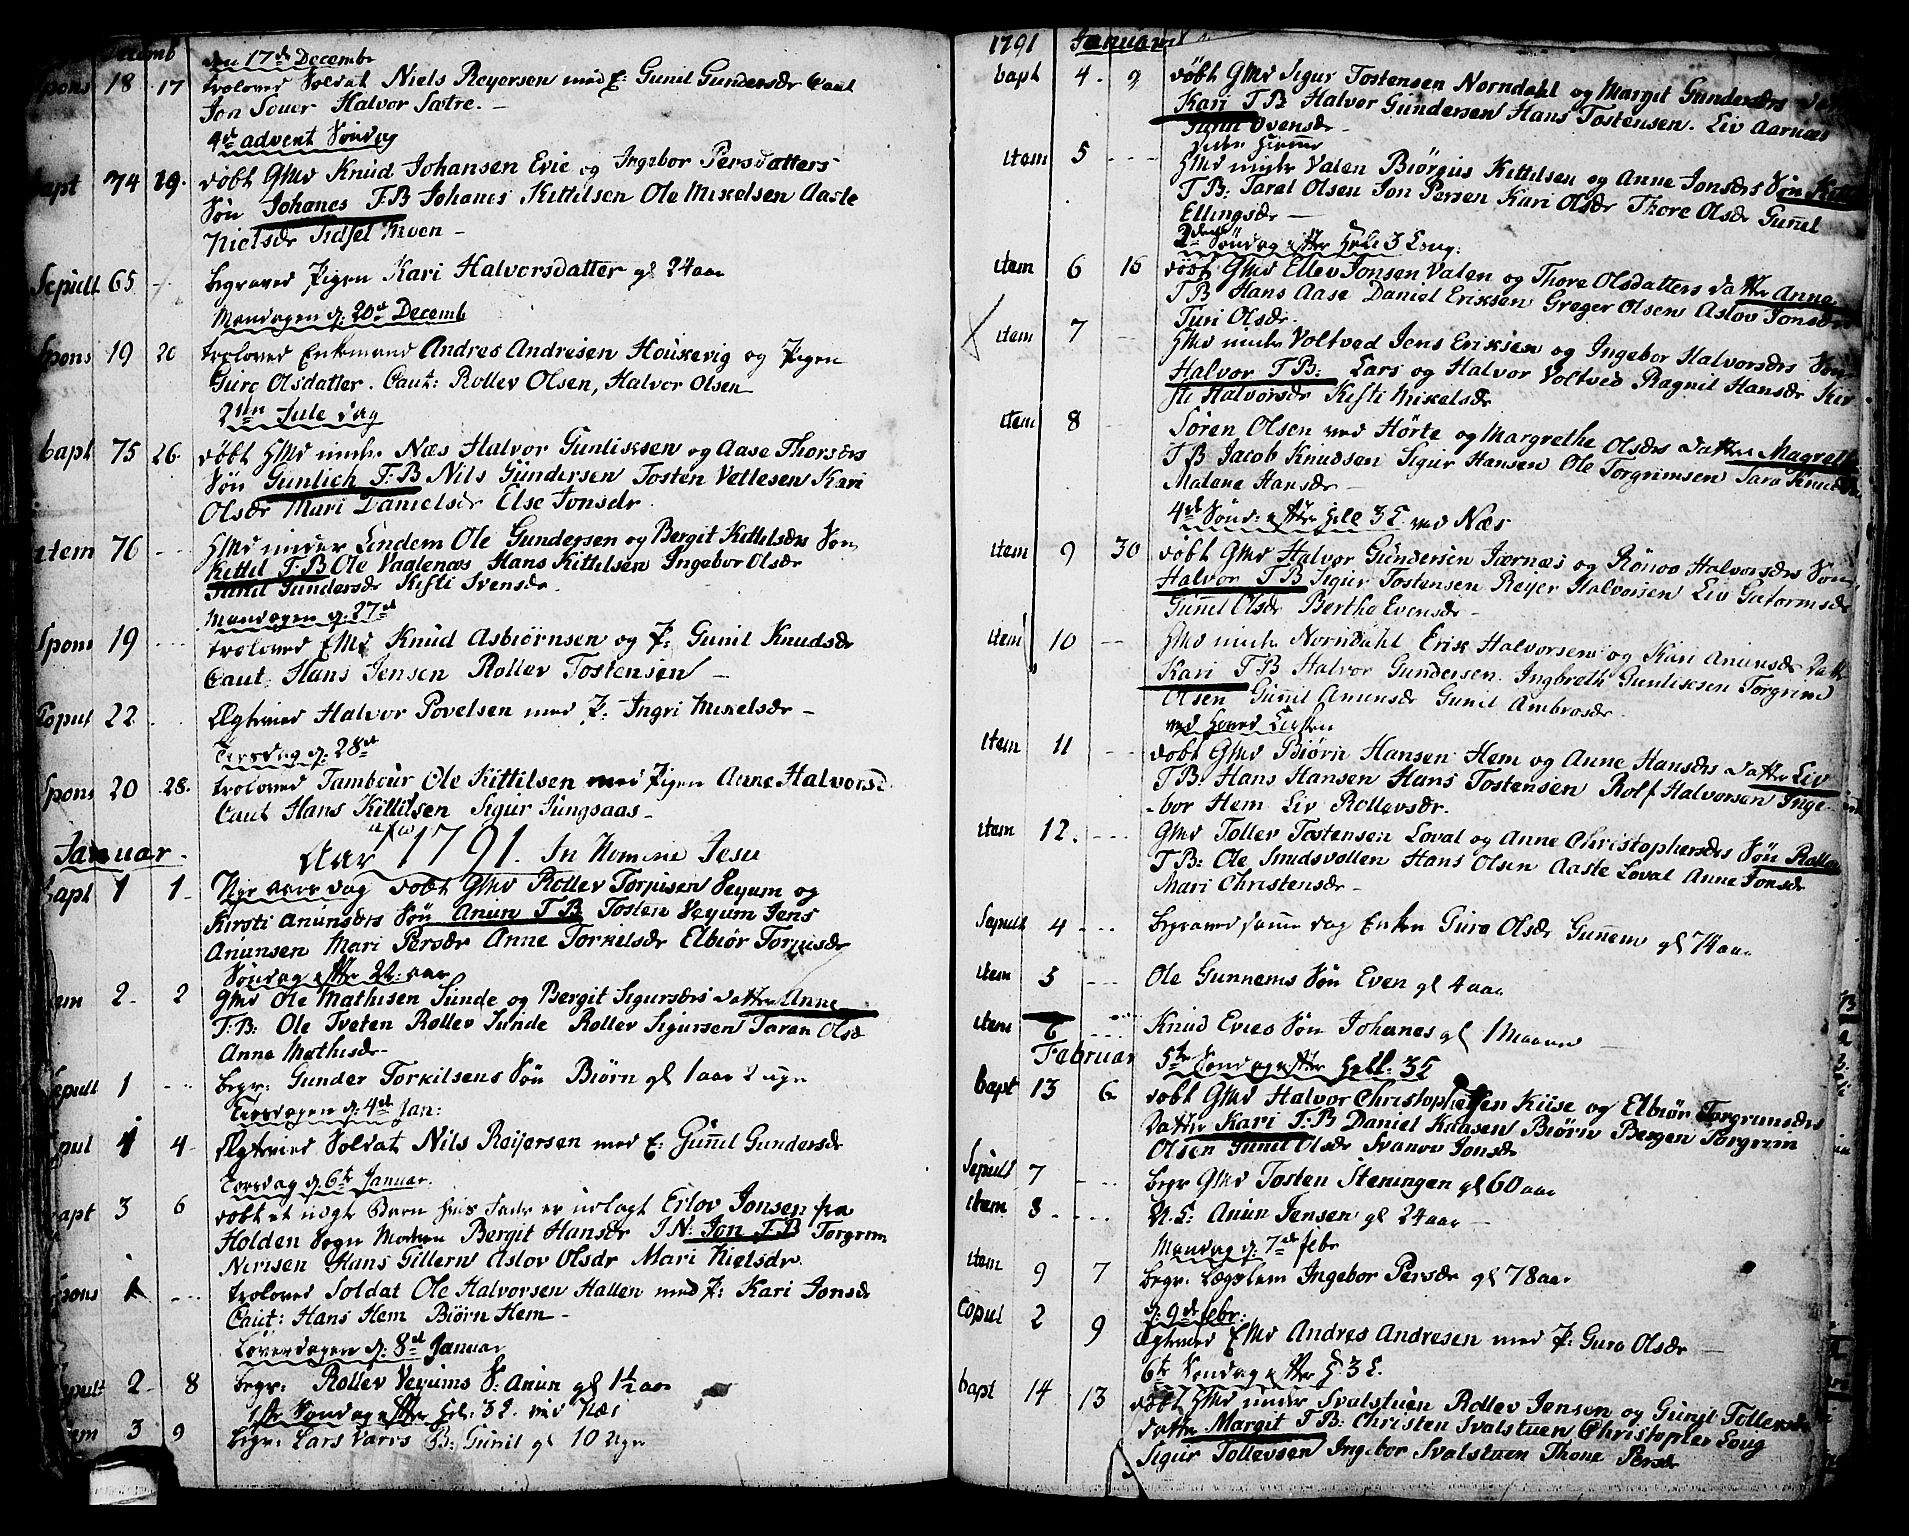 Decemb
den 17de Decembr
Spons 18 17 troloved Soldat Niels Reyersen med E: Gunil Gundersdr Caut
Jon Souer Halvor Sætre. -
4de advent Søndag
bapt 74 19. døbt GMd Knud Johansen Evie og Ingebor Persdatters
Søn Johanes T.B Johanes Kittilsen Ole Mikelsen Aaste
Nielsdr Sidsel Moen -
Sepult 65 begraved Pigen Kari Halvorsdatter gl 24 aar
Mandagen d: 20de Decemb
Spons 19 20 troloved Enkemand Andres Andresen Houkevig og Pigen
Guro Olsdatter. Caut: Rollev Olsen, Halvor Olsen
2den Jule dag
bapt 75 26. døbt HMd under Næs Halvor Gunliksen og Aase Thorsdrs
Søn Gunlich T:B Nils Gundersen Tosten Vetlesen Kari
Olsdr Mari Danielsdr Else Jonsdr.
item 76 --- HMd under Lindem Ole Gundersen og Bergit Kittilsdrs Søn
Kittel T:B Ole Vaalenæs Hans Kittilsen Ingebor Olsdr
Gunil Gundersdr Kisti Svensdr.
Mandagen d: 27de
Spons 19 --- troloved EMd Knud Asbiørnsen og P: Gunil Knudsdr
Caut: Hans Jensen Rollev Tostensen -
Copul 22 Ægtevied Halvor Povelsen med P: Ingri Mikelsdr -
Tirsdag d: 28de
Spons 20 28. troloved Tambour Ole Kittilsen med Pigen Anne Halvorsd
Caut Hans Kittilsen Sigur Jungsaas -
Januar. Aar 1791. In Nomine Jesu
bapt 1 1 Nyt aars dag døbt GMd Rollev Torjusen Veyum og
Kirsti Anunsdrs Søn Anun T B Tosten Veyum Jens
Anunsen Mari Persdr Anne Torkelsdr Elbiør Torjusdr
Søndag efter Nyt: aar
item 2 2 GMd Ole Mathisen Sunde og Bergit Sigursdrs datter Anne
T:B: Ole Tveten Rollev Sunde Rollev Sigursen Taran Olsd
Anne Mathisdr
Sepult 1 --- begr: Gunder Torkilsens Søn Biørn gl 1 aar 2 uger
Tirsdagen d: 4de Jan:
Copul 1 4 Ægtevied Soldat Nils Reijersen med E: Gunil Gundersdr
Torsdag d 6te Januar.
bapt 3 6 døbt et uægte Barn hvis Fader er udlagt Erlov Jonsen fra
Holden Sogn Moderen Bergit Hansdr I N: Jon T:B Torgrim
Nirisen Hans Gillern Aslov Olsdr Mari Nielsdr
Spons 1 --- troloved Soldat Ole Halvorsen Hallen med P: Kari Jonsdr
Caut: Hans Hem Biørn Hem -
Løverdagen d: 8de Januar
Sepult 2 8 begr: Rollev Veyums S: Anun gl 1½ aar
1ste Søndag efter Hel: 3 K. ved Næs
item 3 9 begr: Lars Vaers B: Gunil gl 10 Uger
1791 Januar
bapt 4. 9 døbt GMd Sigur Tostensen Norndahl og Margit Gundersdrs
Kari T B Halvor Gundersen Hans Tostensen. Liv Aarnæs
Gunil Svensdr
item 5 --- HMd under Valen Biørgus Kittilsen og Anne Jonsdrs Søn
T B: Taral Olsen Jon Persen Kari Olsdr Thore Olsdr Gunil
Ellingsdr -
2den Søndag efter Hell: 3 Kong:
item 6 16 døbt GMd Ellev Jonsen Valen og Thore Olsdatters datter Anne
T B Hans Aase Daniel Eriksen Greger Olsen Aslov Jonsdr
Turi Olsdr.
item 7 --- HMd under Voltved Jens Eriksen og Ingebor Halvorsdrs Søn
Halvor T B: Lars og Halvor Voltved Ragnil Hansdr Kir
sti Halvorsdr Kisti Mikelsdr
item 8 Søren Olsen ved Hørte og Margrethe Olsdrs datter Magreth
T B Jacob Knudsen Sigur Hansen Ole Torgrimsen Sara Knudsdr
Malene Hansdr -
4de Sønd: efter Hell 3 K ved Næs
item 9 30 døbt GMd Halvor Gundersen Jærnæs og Rønov Halvorsdrs Søn
Halvor T B Sigur Tostensen Reyer Halvorsen Liv Gutormsdr
Gunil Olsdr Berthe Evensdr -
item 10 -- HMd under Norndahl Erik Halvorsen og Kari Anunsdr Datt
Kari T B Halvor Gundersen. Ingbreth Gunliksen Torgrim
Olsen Gunil Anunsdr Gunil Ambrosdr.
ved Hoved Kirken
item 11 --- døbt GMd Biørn Hansen Hem og Anne Hansdrs datter Liv
T B: Hans Hansen Hans Tostensen Rolf Halvorsen Inge-
-bor Hem Liv Rollevsdr.
item 12. --- GMd Tollev Tostensen Loval og Anne Christophersdrs Søn Rollev
T B: Ole Smedsvollen Hans Olsen Aaste Loval Anne Jonsdr
Mari Christensdr -
Sepult 4 --- begraved samme dag Enken Guro Olsdr Gunnem gl 74 aar
item 5 --- Ole Gunnems Søn Even gl 4 aar
item 6 --- Knud Evies Søn Johanes gl 1 Maaned -
Februar 5te Søndag efter Hell. 3 K
bapt 13 6. døbt GMd Halvor Christophersen Kiise og Elbiør Torgrimsdrs
Datter Kari T:B Daniel Kaasen Biørn Bergen Torgrim
Olsen Gunil Olsdr Svanov Jonsdr
Sepult 7 --- begr GMd Tosten Steningen gl 60 aar
item 8 --- N.L: Anun Jensen gl 24 aar -
Mandag d: 7de febr
item 9 7 begr: Lægslem Ingebor Persdr gl 78 aar
d: 9de febr:
Copul 2 9 Ægtevied EMd Andres Andresen med P: Guro Olsdr -
6te Søndag efter H: 3 K.
bapt 14 13 døbt HMd under Svalstuen Rollev Jensen og Gunil Tollevsdr
datter Margit T B: Christen Svalstuen Christopher Loug
Sigur Tollevsen Ingebor Svalstuen Thone Persdr